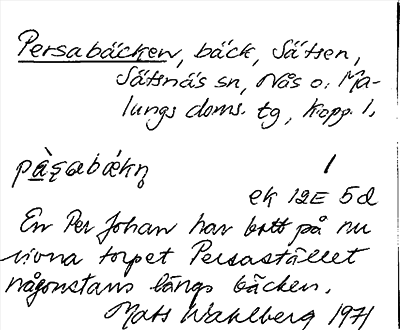 Persabäcken, bäck, Sätsen,
Sätsnäs sn, Nås o. Ma-
lungs doms. tg, Kopp. l.
pàșabækņ 1
ek 12E 5d
En Per Johan har bott på nu
rivna torpet Persastället
någonstans längs bäcken.
Mats Wahlberg 1971